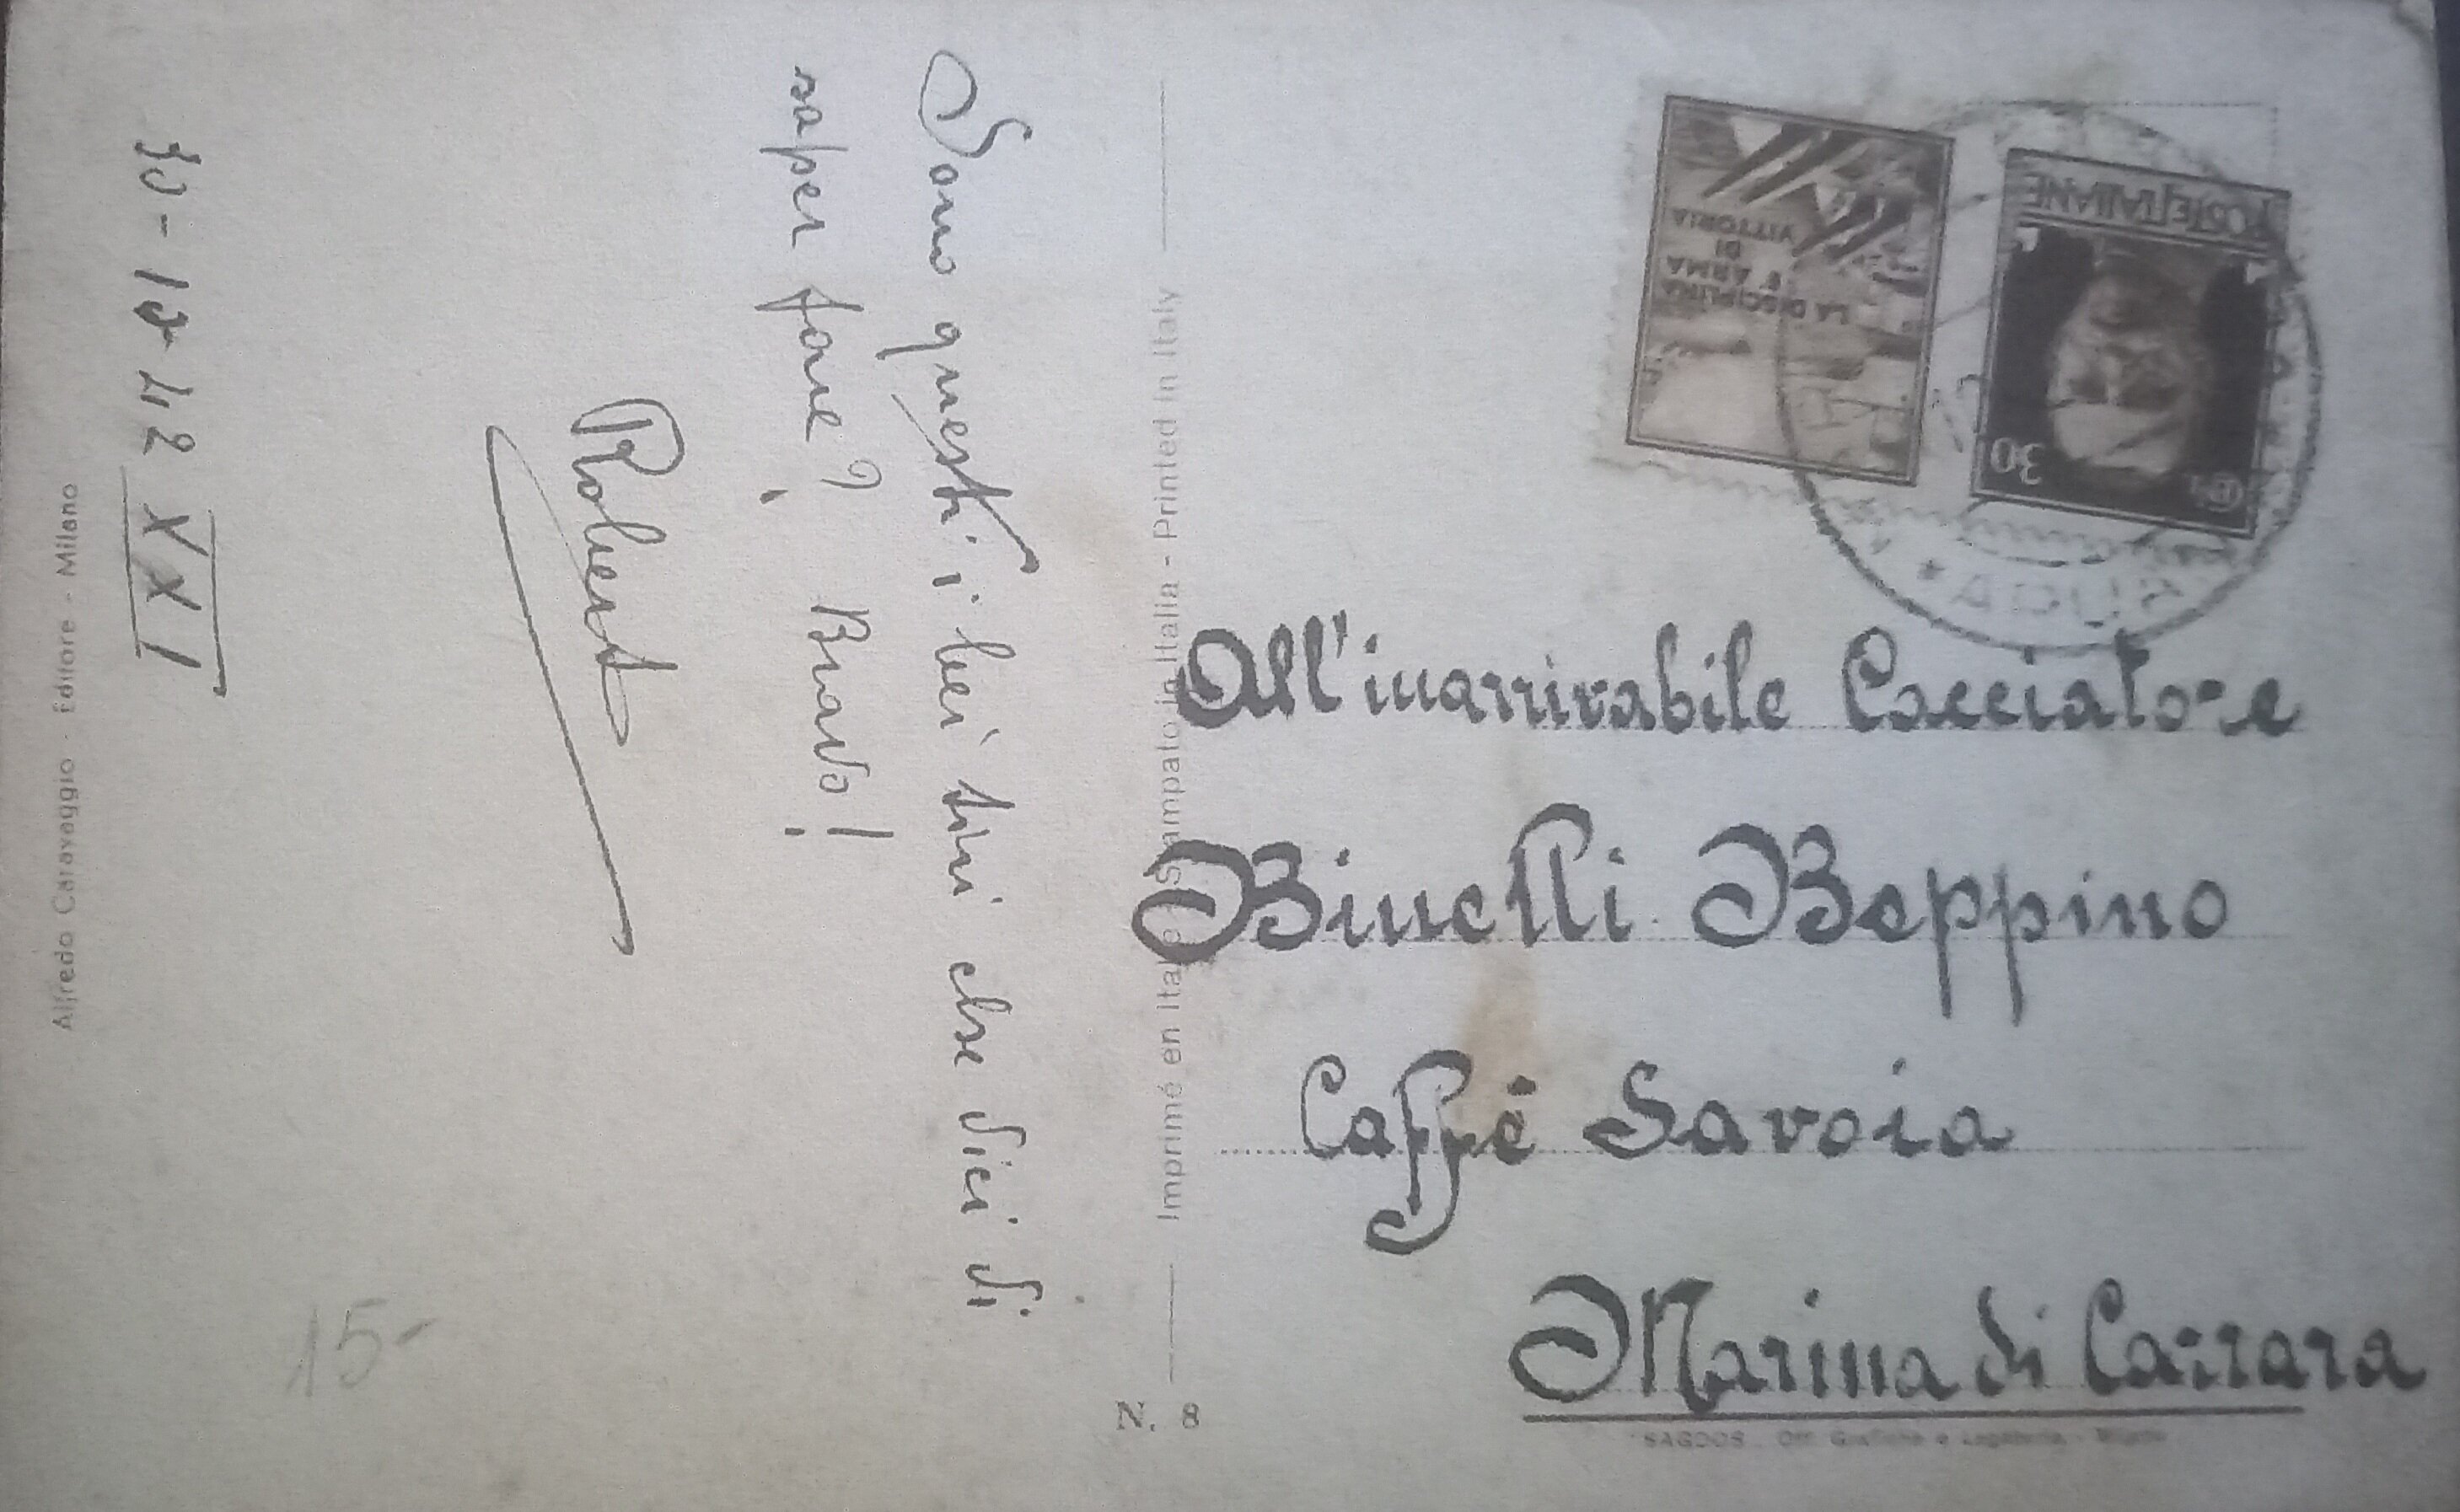 Sono questi i bei tiri che dici di
saper fare? Bravo!
Robert
30-12-42 XXI
Alfredo Caravaggio - Editore - Milano
15-
Imprimé en Italie - Stampato in Italia - Printed in Italy
N. 8
POSTE ITALIANE
30
LA DISCIPLINA
È ARMA
DI
VITTORIA
All'inarrivabile Cacciatore
Binelli Beppino
Caffè Savoia
Marina di Carrara
"SAGDOS" Off. Grafiche e Legatoria - Milano